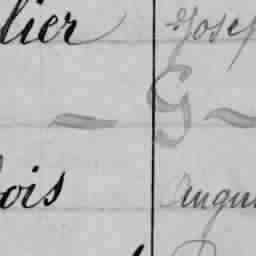 lier Josep
- G -
ois Augus